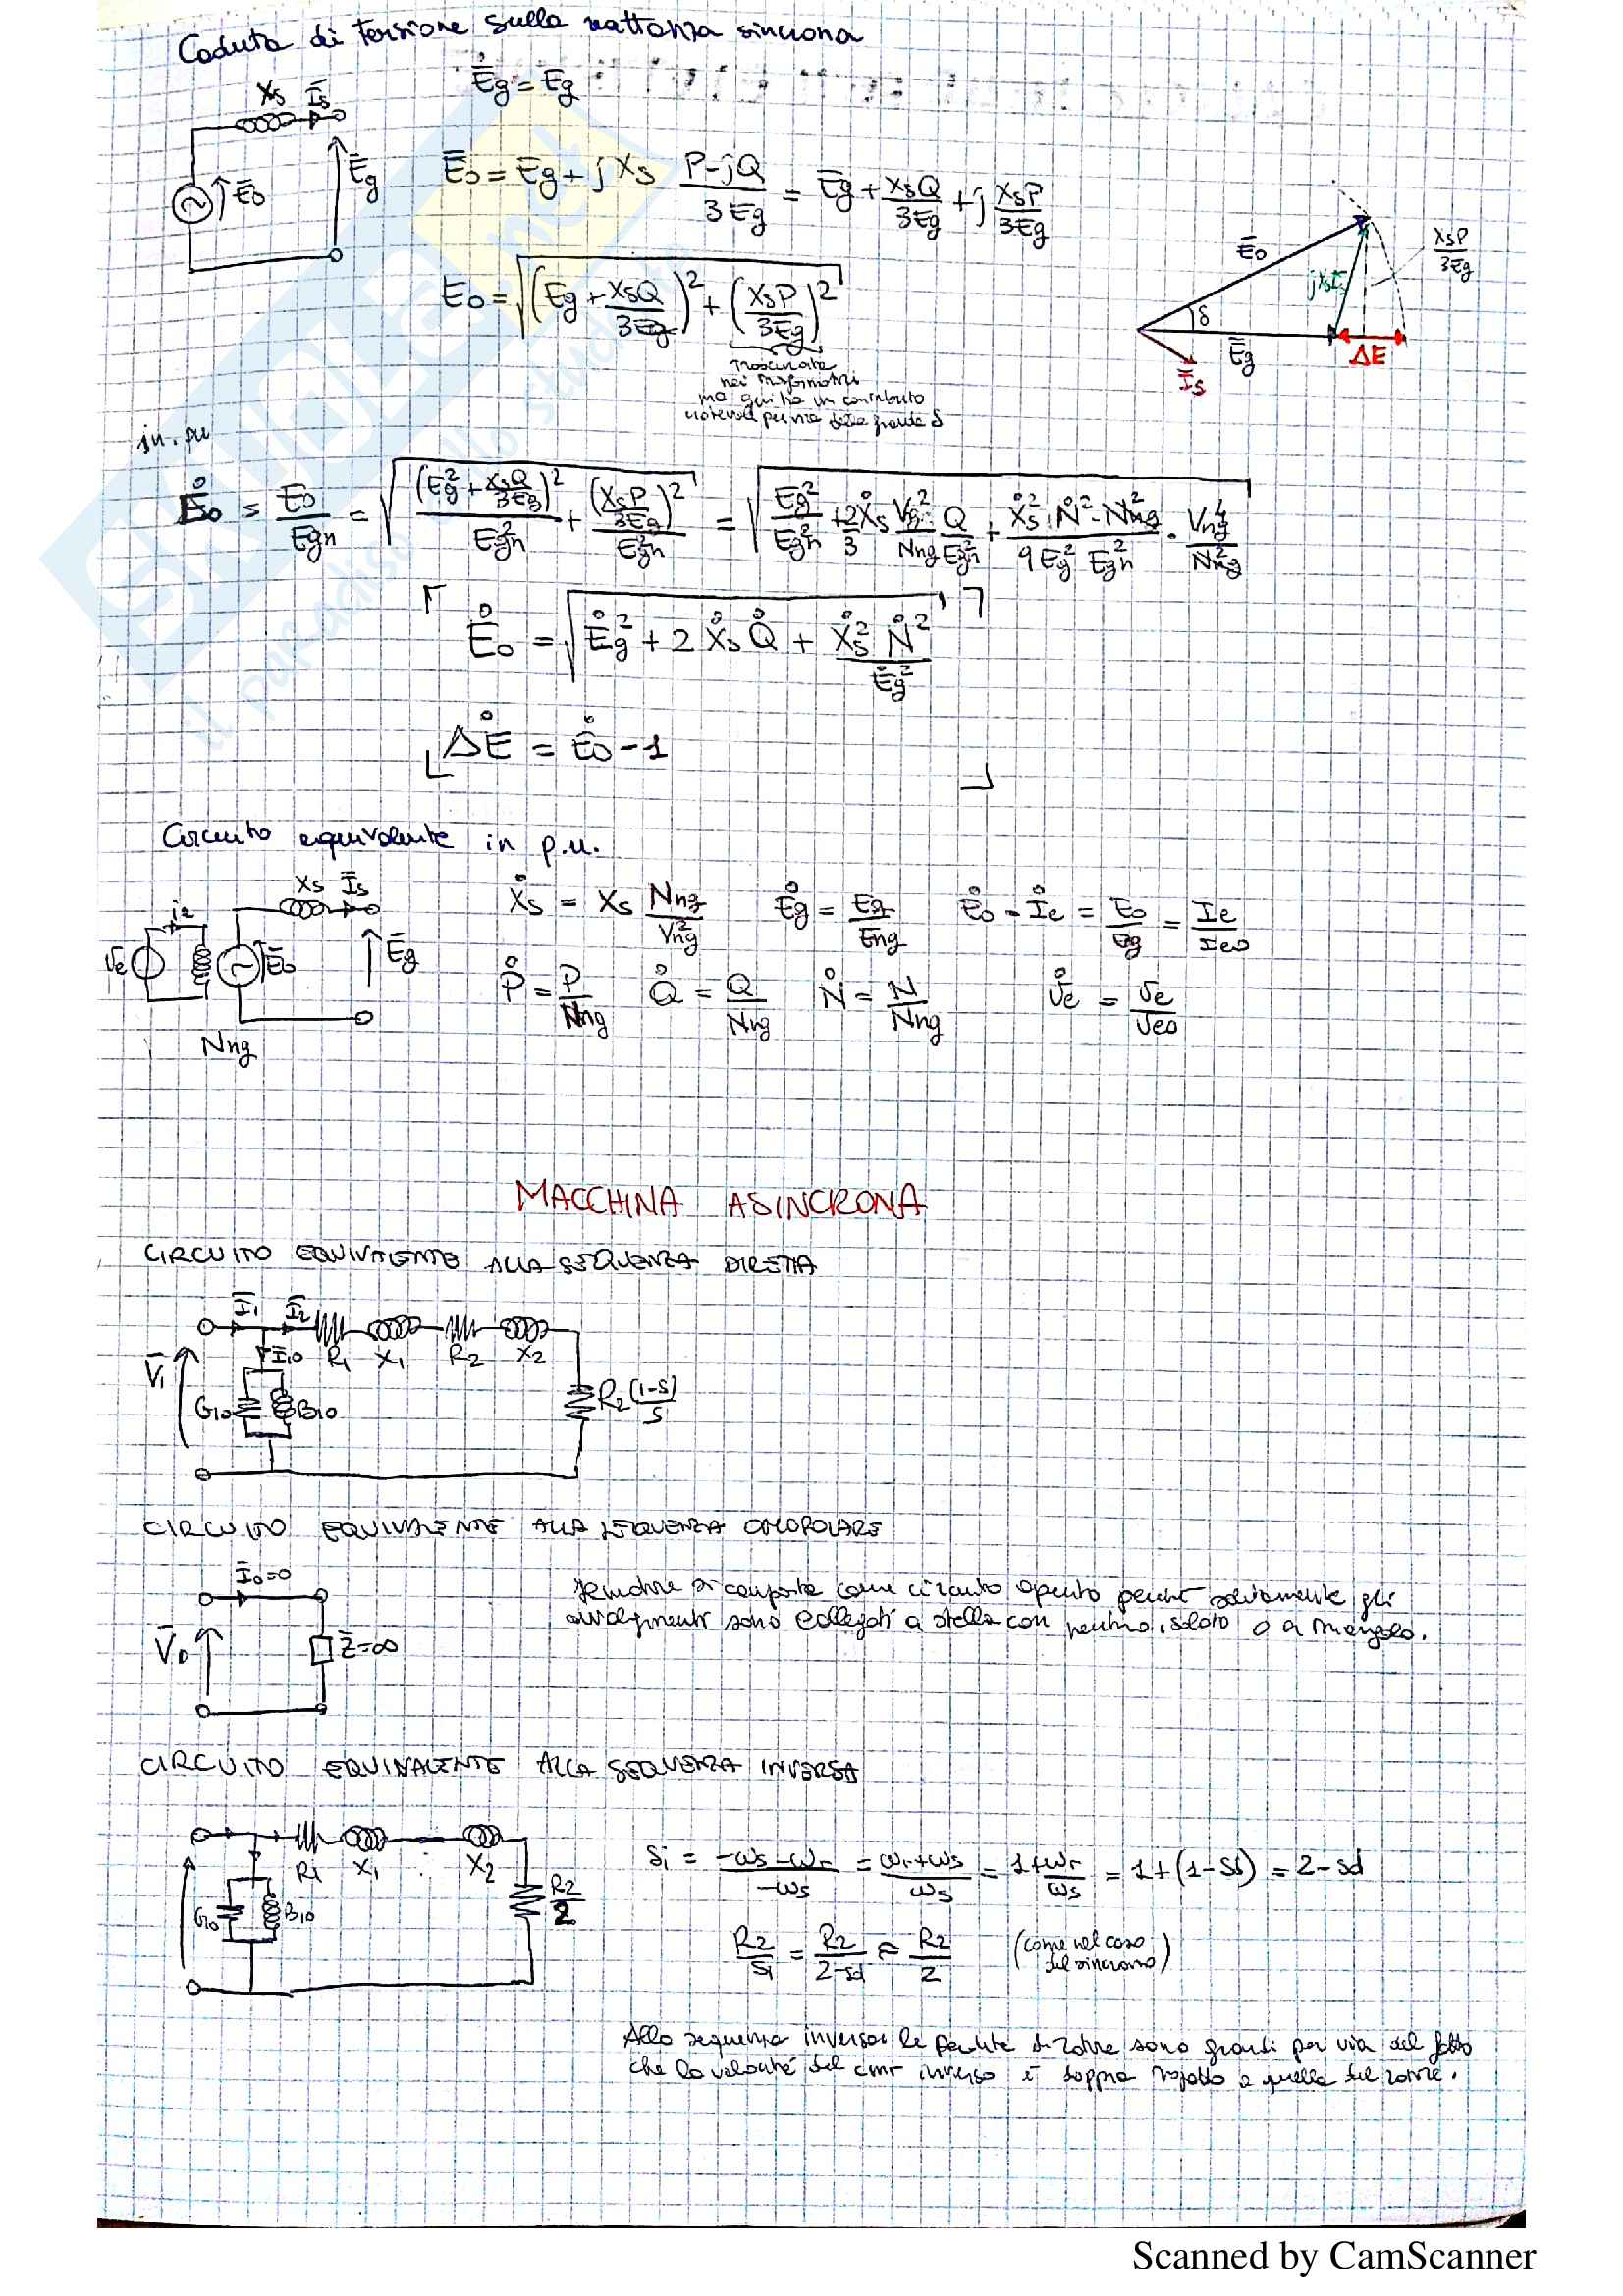 Caduta di tensione sulla reattanza sincrona
Ēg = Eg
Xs Īs
Ē0 Ēg
Ē0 = Eg + j Xs (P-jQ)/(3Eg) = Ēg + XsQ/(3Eg) + j XsP/(3Eg)
E0 = √((Eg + XsQ/(3Eg))² + (XsP/(3Eg))²)
Ē0 jXsĪs XsP/(3Eg)
δ Ēg ΔE
Īs
Trascurata
nei trasformatori
ma qui ha un contributo
notevole per via della grande δ
in p.u
E̊0 = E0/Egn = √((Eg² + XsQ/(3Eg))²/Egn² + (XsP/(3Eg))²/Egn²) = √(Eg²/Egn² + 2/3 X̊s Vng²/Nng Q/Egn² + X̊s² N̊² Nng²/(9Eg² Egn²) · Vng⁴/Nng²)
E̊0 = √(E̊g² + 2 X̊s Q̊ + X̊s² N̊²/E̊g²)
ΔE̊ = E̊0 - 1
Circuito equivalente in p.u.
Xs Īs
ie
Ve Ē0 Ēg
Nng
X̊s = Xs Nng/Vng² E̊g = Eg/Eng E̊0 = I̊e = E0/Eg = Ie/Ie0
P̊ = P/Nng Q̊ = Q/Nng N̊ = N/Nng V̊e = Ve/Ve0
MACCHINA ASINCRONA
CIRCUITO EQUIVALENTE ALLA SEQUENZA DIRETTA
Ī1 Ī2
Ī10 R1 X1 R2 X2
V̄1
G10 B10 R2(1-s)/s
CIRCUITO EQUIVALENTE ALLA SEQUENZA OMOPOLARE
Ī0=0
V̄0 Z̄=∞
si comporta come circuito aperto perché solitamente gli
avvolgimenti sono collegati a stella con neutro isolato o a triangolo.
CIRCUITO EQUIVALENTE ALLA SEQUENZA INVERSA
R1 X1 X2
G10 B10 R2/2
Si = (-ωs-ωr)/(-ωs) = (ωr+ωs)/ωs = 1+ωr/ωs = 1+(1-Sd) = 2-sd
R2/Si = R2/(2-sd) ≈ R2/2 (come nel caso
del sincrono)
Alla sequenza inversa le perdite di rotore sono grandi per via del fatto
che la velocità del cmr inverso è doppia rispetto a quella del rotore.
Scanned by CamScanner